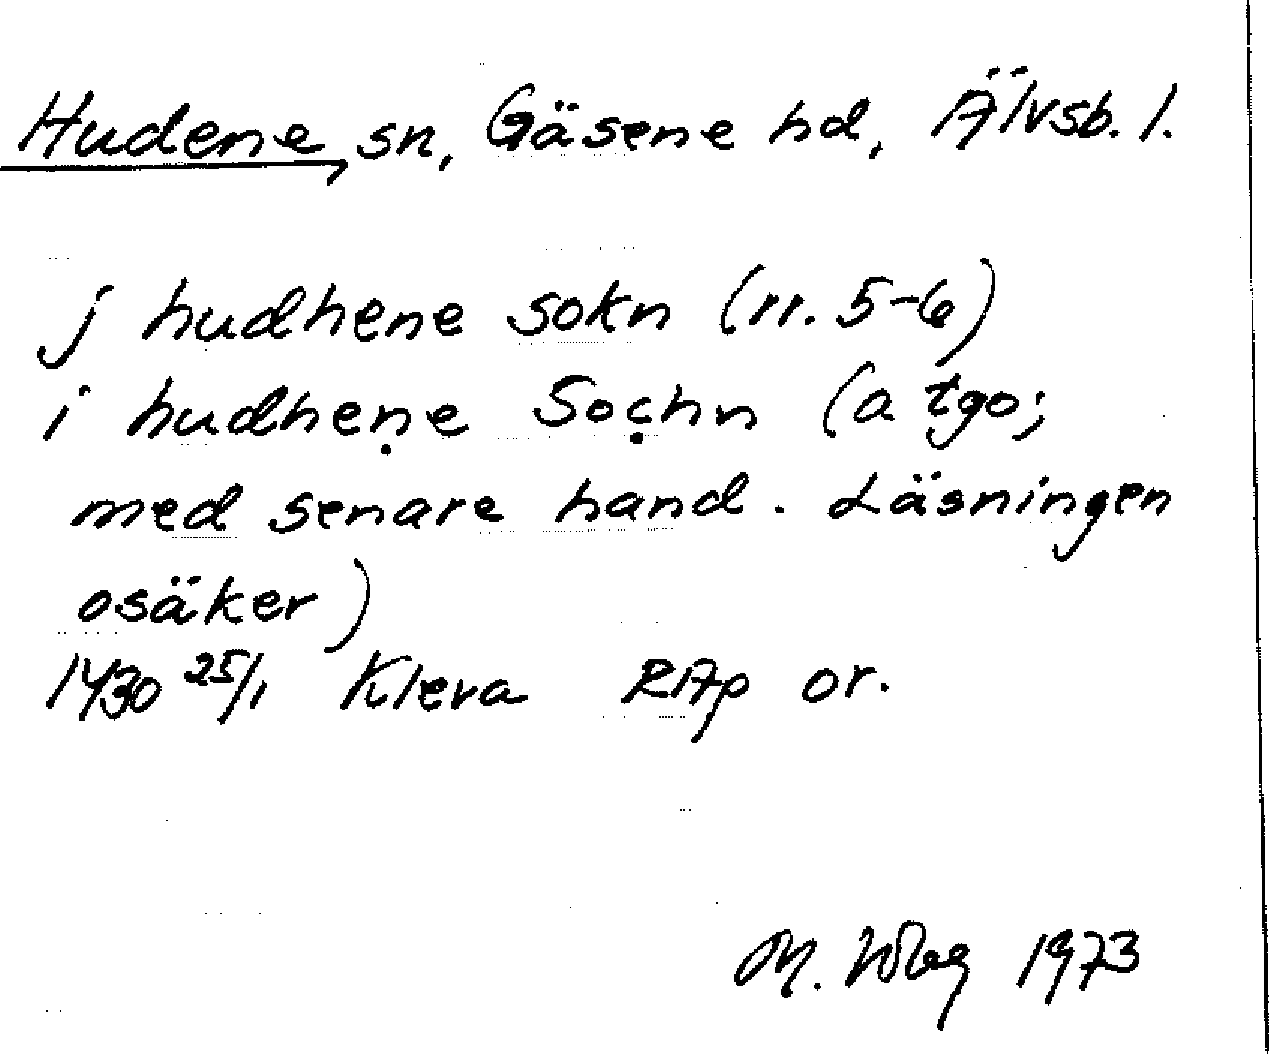 Hudene, sn, Gäsene hd, Älvsb. l.
j hudhene sokn (rr. 5-6)
i hudheṇe Soc̣hn (a tgo;
med senare hand. Läsningen
osäker)
1430 25/1 Kleva RAp or.
M. 1973